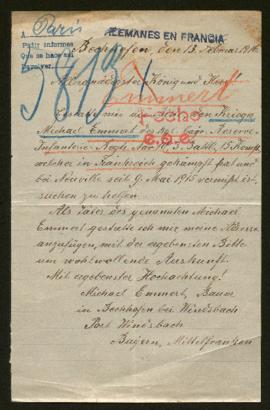 A Paris
ALEMANES EN FRANCIA
Pedir informes
Que se hace así
Bechhofen, den 13. Februar 1916
Allergnädigster König und Herr!
Emmert
Gestatte mir
Michael Emmert des kgl. bayr. Reserve
Infanterie Regts. No 10, 3. Batll., 15. Komp.
welcher in Frankreich gekämpft hat und
bei Neuville seit 9. Mai 1915 vermißt ist,
suchen zu helfen.
Als Vater des genannten Michael
Emmert gestatte ich mir meine Adresse
anzufügen, mit der ergebensten Bitte
um wohlwollende Auskunft.
Mit ergebenster Hochachtung!
Michael Emmert, Bauer
in Bechhofen bei Windsbach
Post Windsbach
Bayern, Mittelfranken